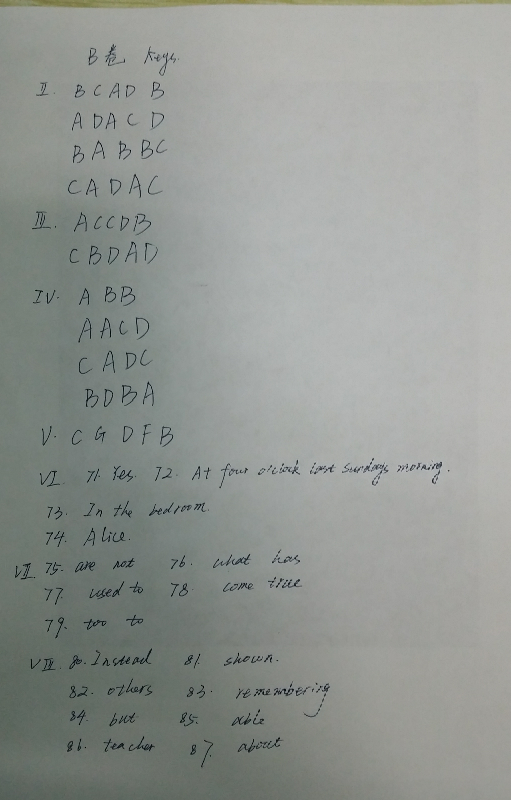 B卷 Keys.
II. B C A D B
A D A C D
B A B B C
C A D A C
III. A C C D B
C B D A D
IV. A B B
A A C D
C A D C
B D B A
V. C G D F B
VI 71. Yes. 72. At four o'clock last Sundays morning.
73. In the bedroom.
74. Alice.
VII. 75. are not 76. what has
77. used to 78. come true
79. too to
VIII. 80. Instead 81. shown.
82. others 83. remembering
84. but 85. able
86. teacher 87. about